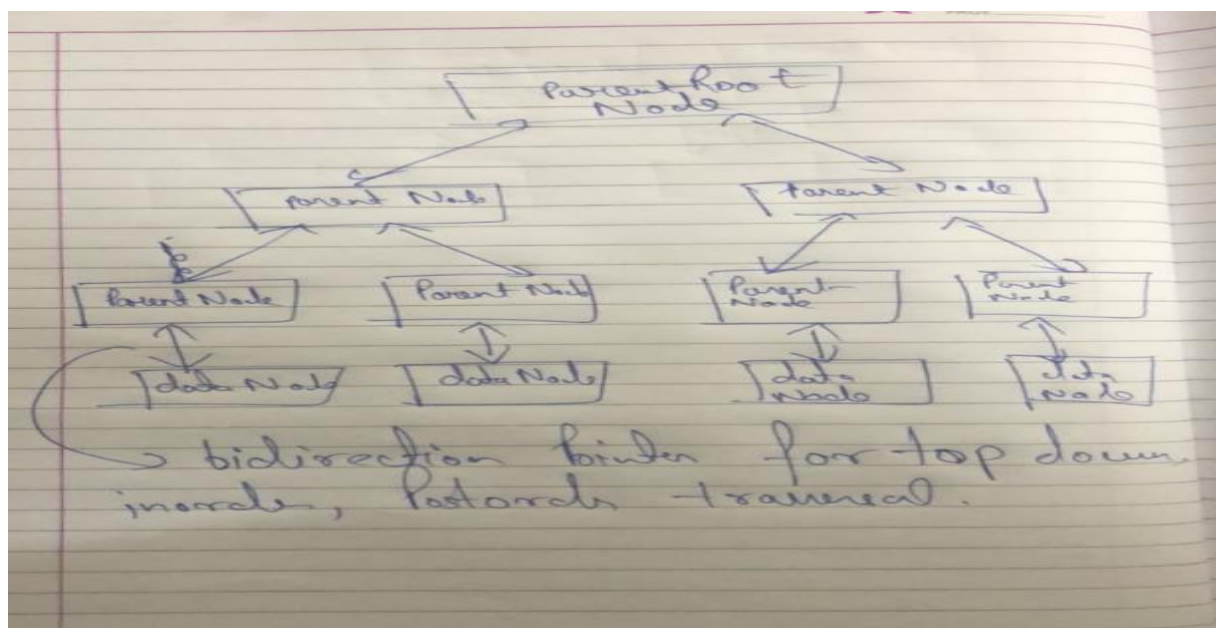 Parent Root
Node
Parent Node
Parent Node
Parent Node
Parent Node
Parent
Node
Parent
Node
data Node
data Node
data
Node
data
Node
bidirection Pointer for top down
inorder, Postorder traversal.